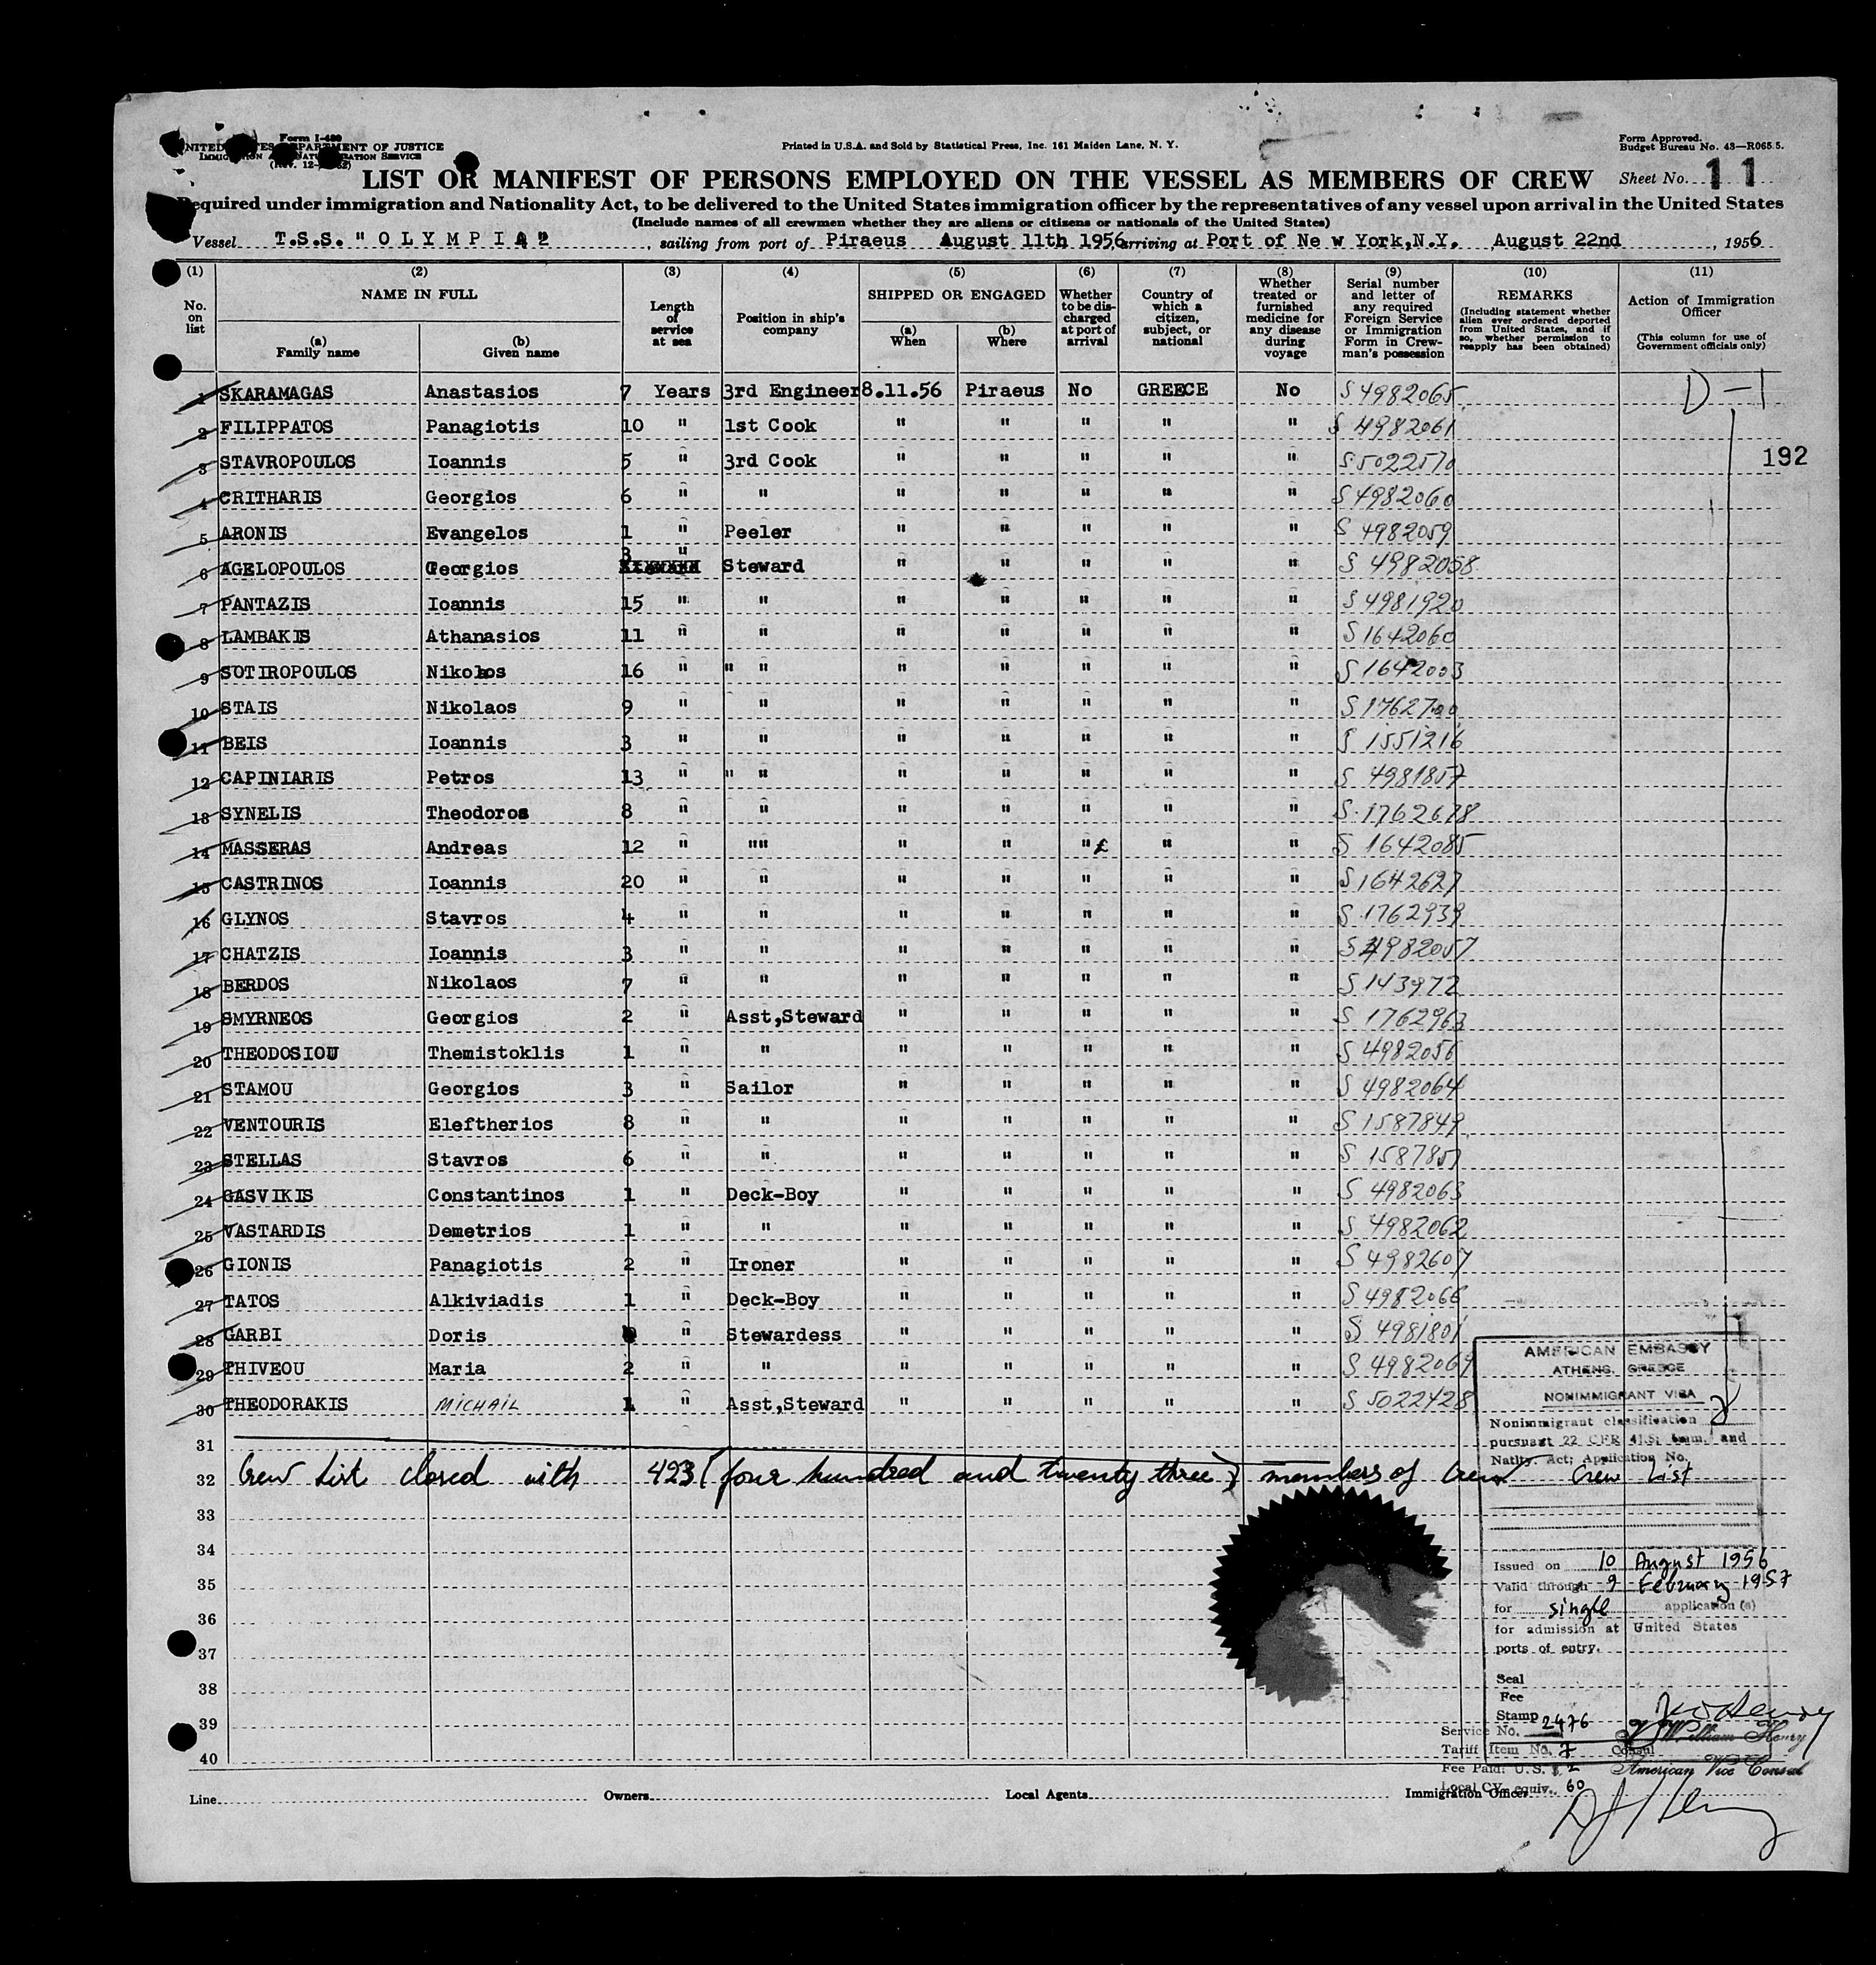 Form I-489
UNITED STATES DEPARTMENT OF JUSTICE
IMMIGRATION AND NATURALIZATION SERVICE
Printed in U.S.A. and Sold by Statistical Press, Inc. 161 Maiden Lane, N. Y.
Form Approved.
Budget Bureau No. 43—R065.5.
LIST OR MANIFEST OF PERSONS EMPLOYED ON THE VESSEL AS MEMBERS OF CREW
Sheet No. 11
Required under immigration and Nationality Act, to be delivered to the United States immigration officer by the representatives of any vessel upon arrival in the United States
(Include names of all crewmen whether they are aliens or citizens or nationals of the United States)
Vessel T.S.S. "OLYMPIA", sailing from port of Piraeus August 11th 1956 arriving at Port of Ne w York,N.Y. August 22nd, 1956
(1) (2) (3) (4) (5) (6) (7) (8) (9) (10) (11)
No. on list
NAME IN FULL
(a) Family name
(b) Given name
Length of service at sea
Position in ship's company
SHIPPED OR ENGAGED
(a) When
(b) Where
Whether to be discharged at port of arrival
Country of which a citizen, subject, or national
Whether treated or furnished medicine for any disease during voyage
Serial number and letter of any required Foreign Service or Immigration Form in Crewman's possession
REMARKS
(Including statement whether alien ever ordered deported from United States, and if so, whether permission to reapply has been obtained)
Action of Immigration Officer
(This column for use of Government officials only)
1 SKARAMAGAS Anastasios 7 Years 3rd Engineer 8.11.56 Piraeus No GREECE No S 4982065 D-1
2 FILIPPATOS Panagiotis 10 " 1st Cook " " " " " S 4982061
3 STAVROPOULOS Ioannis 5 " 3rd Cook " " " " " S 5022570 192
4 CRITHARIS Georgios 6 " " " " " " " S 4982060
5 ARONIS Evangelos 1 " Peeler " " " " " S 4982059
6 AGELOPOULOS Georgios 3 " Steward " " " " " S 4982058
7 PANTAZIS Ioannis 15 " " " " " " " S 4981920
8 LAMBAKIS Athanasios 11 " " " " " " " S 1642060
9 SOTIROPOULOS Nikolaos 16 " " " " " " " " S 1642003
10 STAIS Nikolaos 9 " " " " " " " S 1762700
11 BEIS Ioannis 3 " " " " " " " S 1551216
12 CAPINIARIS Petros 13 " " " " " " " " S 4981857
13 SYNELIS Theodoros 8 " " " " " " " S 1762678
14 MASSERAS Andreas 12 " "" " " " £ " " S 1642085
15 CASTRINOS Ioannis 20 " " " " " " " S 1642627
16 GLYNOS Stavros 4 " " " " " " " S 1762939
17 CHATZIS Ioannis 3 " " " " " " " S 4982057
18 BERDOS Nikolaos 7 " " " " " " " S 143972
19 SMYRNEOS Georgios 2 " Asst,Steward " " " " " S 1762963
20 THEODOSIOU Themistoklis 1 " " " " " " " S 4982056
21 STAMOU Georgios 3 " Sailor " " " " " S 4982064
22 VENTOURIS Eleftherios 8 " " " " " " " S 1587849
23 STELLAS Stavros 6 " " " " " " " S 1587851
24 GASVIKIS Constantinos 1 " Deck-Boy " " " " " S 4982063
25 VASTARDIS Demetrios 1 " " " " " " " S 4982062
26 GIONIS Panagiotis 2 " Ironer " " " " " S 4982607
27 TATOS Alkiviadis 1 " Deck-Boy " " " " " S 4982066
28 GARBI Doris " Stewardess " " " " " S 4981801
29 THIVEOU Maria 2 " " " " " " " S 4982069
30 THEODORAKIS MICHAIL 1 " Asst,Steward " " " " " S 5022428
31
32 Crew list closed with 423 (four hundred and twenty three) members of Crew
33
34
35
36
37
38
39
40
AMERICAN EMBASSY
ATHENS, GREECE
NONIMMIGRANT VISA
Nonimmigrant classification
pursuant 22 CFR 41.5; Imm. and
Natlty. Act; Application No.
Crew List
Issued on 10 August 1956
Valid through 9 February 1957
for single application (s)
for admission at United States
ports of entry.
Seal
Fee
Stamp
Service No. 2476
Tariff Item No. 7
Fee Paid: U.S. $ 2
Local CY. equiv. 60
William Henry
Consul
American Vice Consul
Line Owners Local Agents Immigration Officer